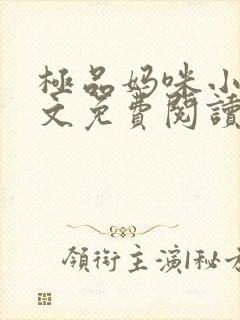 極品妈咪小
文免費閱讀
領銜主演|秘方